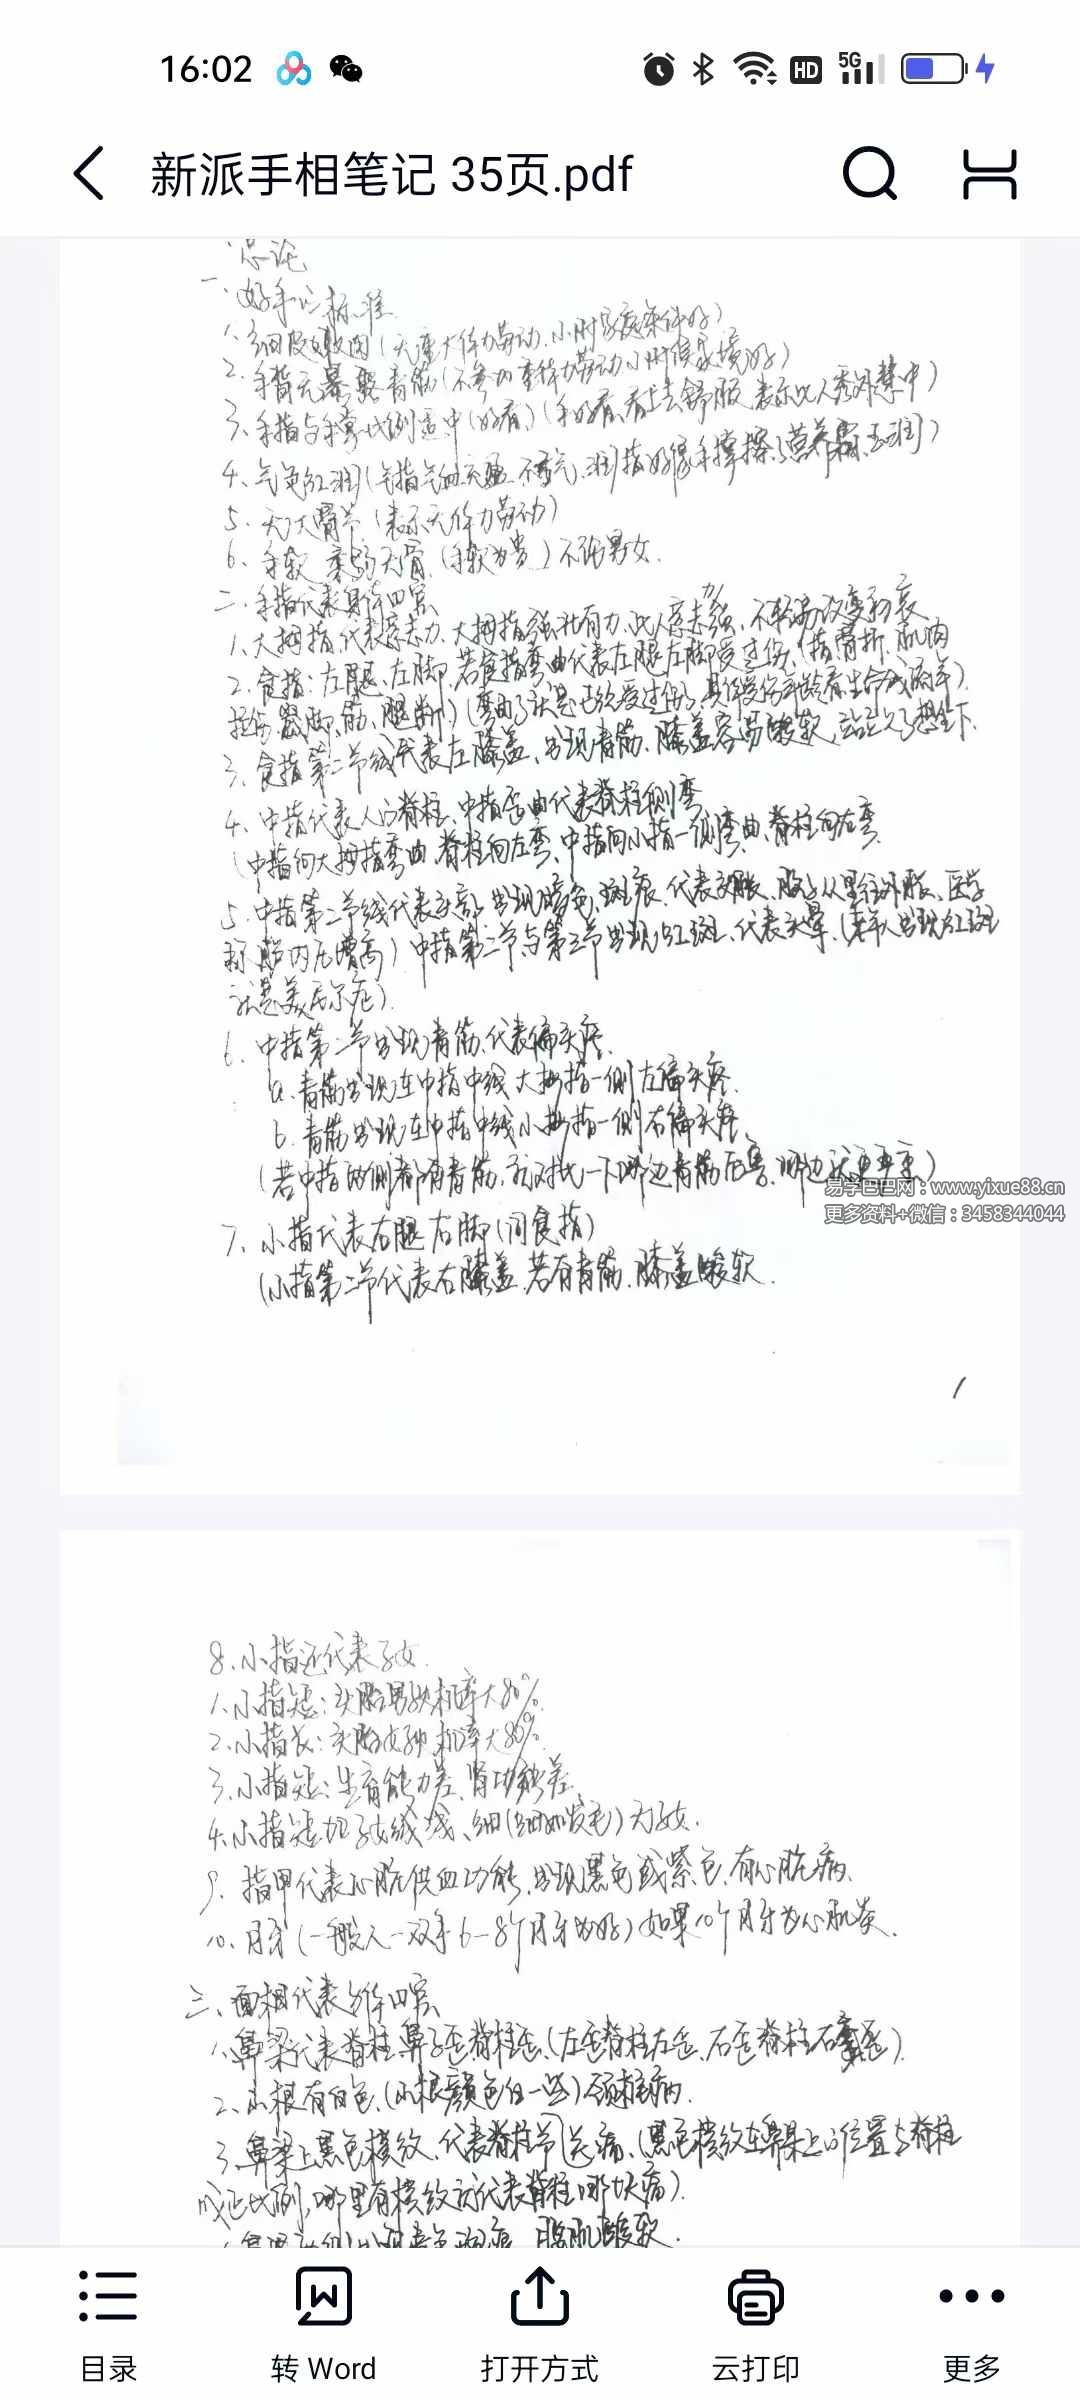 16:02
HD 5G
新派手相笔记 35页.pdf
总论
一、好手的标准
1、细皮嫩肉(无重大体力劳动、小时家庭条件好)
2、手背无暴露青筋(不参加重体力劳动小时候家境好)
3、手指与手掌比例适中(好看)(手好看、看上去舒服,表示此人秀外慧中)
4、气色红润(气指气血充盈、不 气)、润指好像手掌擦了营养霜、玉润)
5、无大骨节(表示无体力劳动)
6、手软 柔弱无骨、(手软为贵)不论男女.
二、手指代表身体四害
1、大拇指、代表意志力、大拇指强壮有力、此人意志力强,不轻易改变初衷
2、食指:左腿、左脚、若食指弯曲代表左腿左脚受过伤、(指骨折、肌肉
拉伤、崴脚、筋、腿断)(弯曲了就是已经受过伤了、具体受伤年龄看生命线流年)
3、食指第二节线代表左膝盖、出现青筋、膝盖容易酸软,站立久了想坐下.
4、中指代表人的脊柱、中指歪曲代表脊柱侧弯
(中指向大拇指弯曲、脊柱向左弯、中指向小指一侧弯曲、脊柱向右弯
5、中指第二节线代表头部,出现暗色、斑痕、代表头胀、脑子从里往外胀、医学
称脑内压增高)中指第二节与第三节出现红斑、代表头晕、(老年人出现红斑
就是美尼尔症)
6、中指第二节出现青筋、代表偏头疼.
a、青筋出现在中指中线大拇指一侧左偏头疼.
b、青筋出现在中指中线小拇指一侧右偏头疼.
(若中指两侧都有青筋、就对比一下哪边青筋厉害、哪边就更严重)
易学巴巴网:www.yixue88.cn
更多资料+微信:3458344044
7、小指代表右腿右脚(同食指)
(小指第二节代表右膝盖、若有青筋、膝盖酸软.
1
8、小指还代表子女.
1、小指短:头胎男孩机率大80%.
2、小指长:头胎女孩机率大80%.
3、小指短:生育能力差、肾功能差
4、小指短加子女线浅、细(细如发毛)无子女.
9、指甲代表心脏供血功能,出现黑色或紫色,有心脏病.
10、月牙(一般人一双手6-8个月牙为好)如果10个月牙为心肌炎.
三、面相代表身体四害
1、鼻梁代表脊柱、鼻子歪脊柱歪、(左歪脊柱左歪、右歪脊柱右歪)
2、山根有白色、(山根颜色白一些)颈椎病.
3、鼻梁上黑色横纹、代表脊柱节 病、(黑色横纹在鼻梁上的位置与脊柱
成正比例,哪里有横纹就代表脊柱哪块病)
目录
转 Word
打开方式
云打印
更多